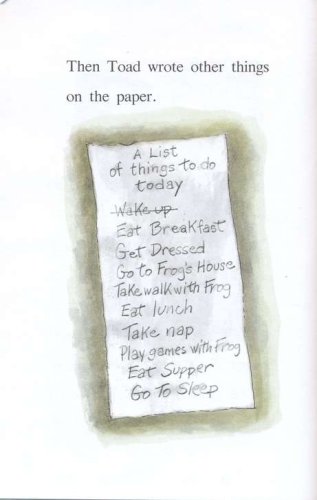 Then Toad wrote other things
on the paper.
A List
of things to do
today
Wake up
Eat Breakfast
Get Dressed
Go to Frog's House
Take walk with Frog
Eat lunch
Take nap
Play games with Frog
Eat Supper
Go To Sleep